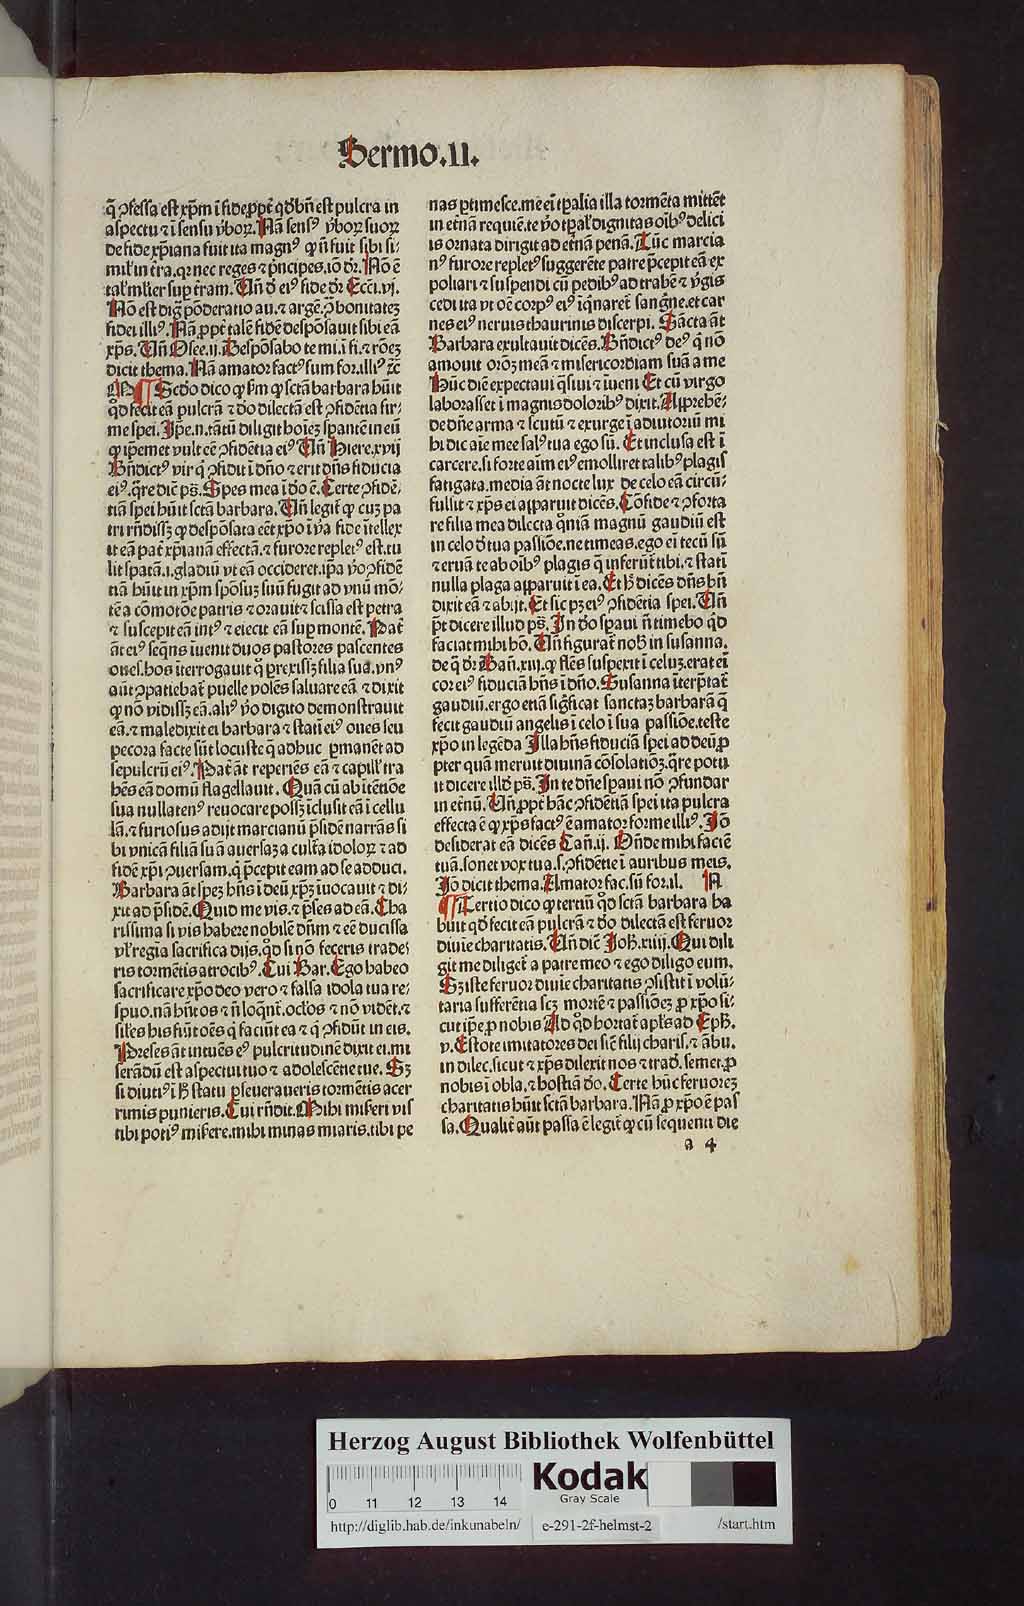 Sermo.II.
q̄ ꝯfessa est xp̄m ī fide ꝓpt̄ qd̓ bn̄ est pulcra in
aspectu ⁊ ī sensu v̓boꝝ. Nā sensꝰ v̓boꝝ suoꝝ
de fide xp̄iana fuit ita magnꝰ ꝙ n̄ fuit sibi si-
mil̓ in t̄ra. qꝛ nec reges ⁊ p̓ncipes. iō dr̄. Nō ē
tal̓ mlier̓ sup t̄ram. Un̄ d̓ eiꝰ fide dr̄ Ecci̓. vj.
Nō est dig̓ pōderatio au. ⁊ argē. ꝯ̄ bonitatez
fidei illiꝰ. Nā ꝓpt̄ talē fidē despōsauit sibi eā
xp̄s. Un̄ Osee. ij. Despōsabo te mi. ī fi. ⁊ rōez
dicit thema. Nā amator factꝰ sum for. illiꝰ ⁊c̄
N ¶ Scd̓o dico ꝙ scd̓m ꝙ sctā barbara hūit
qd̓ fecit eā pulcrā ⁊ dō dilectā est ꝯfidētia fir-
me spei. Ip̄e. n. tātū diligit hoīez spantē in eū
ꝙ ip̄emet vult eē ꝯfidētia eiꝰ Un̄ Hiere. xvij
Bn̄dictꝰ vir q̓ ꝯfidit ī dn̄o ⁊ erit dn̄s fiducia
eiꝰ. qr̄e dic̄ p̄s. Spes mea ī dō ē. Certe ꝯfidē-
tiā spei hūit sctā barbara. Un̄ legit̄ ꝙ cuꝫ pa
tri rn̄dissꝫ ꝙ despōsata eēt xp̄o ī v̓a fide ītellex
it eā pat̄ xp̄ianā effectā. ⁊ furore repletꝰ est. tu
lit spatā. i. gladiū vt eā occideret. ip̄a v̓o ꝯfidē
tiā hūit in xp̄m spōsuꝫ suū fugit ad vnū mō-
tē a cōmotōe patris ⁊ orauit ⁊ scissa est petra
⁊ suscepit eā intꝰ ⁊ eiecit eā sup montē. Pat̄
āt eiꝰ seq̄ns iuenit duos pastores pascentes
oues. hos īterrogauit q̓ p̄rexissꝫ filia sua. vnꝰ
aūt ꝯpatiebat̄ puelle volēs saluare eā ⁊ dixit
ꝙ nō vidissꝫ eā. aliꝰ v̓o digito demonstrauit
eā. ⁊ maledixit ei barbara ⁊ stati eiꝰ oues seu
pecora facte sūt locuste q̄ adhuc ꝑmanēt ad
sepulcrū eiꝰ. Pat̄ āt reperiēs eā ⁊ capill̓ tra
hēs eā domū flagellauit. Quā cū ab itētiōe
sua nullatenꝰ reuocare possꝫ īclusit eā ī cellu
lā. ⁊ furiosus adijt marcianū p̄sidē narrās si
bi vnicā filiā suā auersaꝫ a cultᷓ idoloꝝ ⁊ ad
fidē xp̄i ꝯuersam. q̓ p̄cepit eam ad se adduci.
Barbara āt spez hn̄s ī deū xp̄ꝫ īuocauit ⁊ di-
xit ad p̄sidē. Quid me vis. ⁊ p̄ses ad eā. Cha
rissima si vis habere nobilē dn̄m ⁊ eē ducissa
vl̓ regīa sacrifica dijs. qd̓ si nō feceris tradeṛ
ris tormētis atrocibꝰ. Cui Bar. Ego habeo
sacrificare xp̄o deo vero ⁊ falsa idola tua re-
spuo. nā hn̄t os ⁊ n̄ loqn̄t̄. ocl̓os ⁊ nō vidēt. ⁊
siles his fiūt oēs q̓ faciūt ea ⁊ q̓ ꝯfidūt in eis.
Preses āt intuēs eꝰ pulcritudinē dixit ei. mi
serādū est aspectui tuo ⁊ adolescētie tue. Sꝫ
si diutiꝰ ī h̓ statu ꝑseueraueris tormētis acer
rimis punieris. Cui rn̄dit. Mihi miseri vis
tibi potiꝰ misere. mihi minas miaris. tibi pe
nas ptimesce. me eī tꝑalia illa tormēta mittēt
in et̄nā requiē. te v̓o tꝑal̓ dignitas oībꝰ delici
is ornata dirigit ad et̄nā penā. Tūc marcia
nꝰ furore repletꝰ suggerēte patre p̄cepit eā ex
poliari ⁊ suspendi cū pedibꝰ ad trabē ⁊ v̓gis
cedi ita vt oē corpꝰ eiꝰ īq̓naret̄ sang̓ne. et car
nes eiꝰ neruis thaurinis discerpi. Sācta āt
Barbara exultauit dicēs. Bn̄dictꝰ deꝰ q̓ nō
amouit oroꝫ meā ⁊ misericordiam suā a me
Hūc diē expectaui q̄siui ⁊ iueni Et cū virgo
laborasset ī magnis doloribꝰ dixit. Apprehē-
de dn̄e arma ⁊ scutū ⁊ exurge ī adiutoriū mi
hi dic aīe mee salꝰ tua ego sū. Et inclusa est ī
carcere. si forte aīm eiꝰ emolliret talibꝰ plagis
fatigata. media āt nocte lux de celo eā circū-
fulsit ⁊ xp̄s ei apparuit dicēs. Cōfide ⁊ ꝯforta
re filia mea dilecta qm̄iā magnū gaudiū est
in celo d̓ tua passiōe. ne timeas. ego eī tecū sū
⁊ eruā te ab oībꝰ plagis q̄ inferūt̄ tibi. ⁊ stati
nulla plaga apparuit ī ea. Et h̓ dicēs dn̄s bn̄
dixit eā ⁊ abijt. Et sic pꝫ eiꝰ ꝯfidētia spei. Un̄
p̄t dicere illud p̄s. In dō spaui n̄ timebo qd̓
faciat mihi hō. Un̄ figurat̄ nob̓ in susanna.
de q̄ dr̄ Dan̄. xiij. ꝙ flēs suspexit ī celuꝫ. erat eī
cor eiꝰ fiduciā hn̄s ī dn̄o. Susanna īterp̄tat̄
gaudiū. ergo etiā sig̓ficat sanctaꝫ barbarā q̄
fecit gaudiū angelis ī celo ī sua passiōe. teste
xp̄o in legēda Illa hn̄s fiduciā spei ad deū ꝓ
pter quā meruit diuinā cōsolatiōꝫ. qr̄e potu
it dicere illd̓ p̄s. In te dn̄e spaui nō ꝯfundar
in et̄nū. Un̄ ꝓpt̄ hāc ꝯfidētiā spei ita pulcra
effecta ē ꝙ xp̄s factꝰ ē amator forme illiꝰ. Iō
desiderat eā dicēs Can̄. ij. On̄de mihi faciē
tuā. sonet vox tua. s. ꝯfidētie ī auribus meis.
Iō dicit thema. Amator fac. sū for. il. N
¶ Tertio dico ꝙ tertiū qd̓ sctā barbara ha
buit qd̓ fecit eā pulcrā ⁊ dō dilectā est feruor
diuīe charitatis. Un̄ dic̄ Joh̓. xiiij. Qui dili
git me diliget̄ a patre meo ⁊ ego diligo eum.
Sꝫ iste feruor diuīe charitatis ꝯsistit ī volū-
taria sufferētia scꝫ mortē ⁊ passiōeꝫ ꝓ xp̄o si-
cut ip̄e ꝓ nobis Ad qd̓ hortat̄ apl̓s ad Eph̓.
v. Estote imitatores dei sic̄ filij charis. ⁊ ābu.
in dilec. sicut ⁊ xp̄s dilexit nos ⁊ trad̓. semet. ꝓ
nobis ī obla. ⁊ hostiā dō. Certe hūc feruorez
charitatis hūit sctā barbara. Nā ꝓ xp̄o ē pas
sa. Qualit̄ aūt passa ē legit̄ ꝙ cū sequenti die
a 4
Herzog August Bibliothek Wolfenbüttel
0 11 12 13 14
Kodak
Gray Scale
http://diglib.hab.de/inkunabeln/ e-291-2f-helmst-2 /start.htm